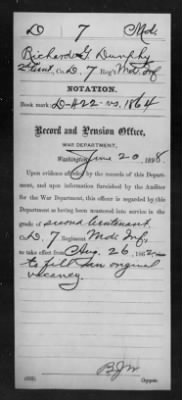 D 7 Md.
Richard G. Dunphy
2 Lieut, Co. D, 7 Reg't Md. Inf.
NOTATION.
Book mark D-422-vs. 1864
Record and Pension Office,
WAR DEPARTMENT,
Washington, June 20, 1898.
Upon evidence afforded by the records of this Department,
and upon information furnished by the Auditor
for the War Department, this officer is regarded by this
Department as having been mustered into service in the
grade of second lieutenant.
Co. D, 7 Regiment Md. Inf.,
to take effect from Aug. 26, 1862
to fill an original
vacancy.
Copyist.